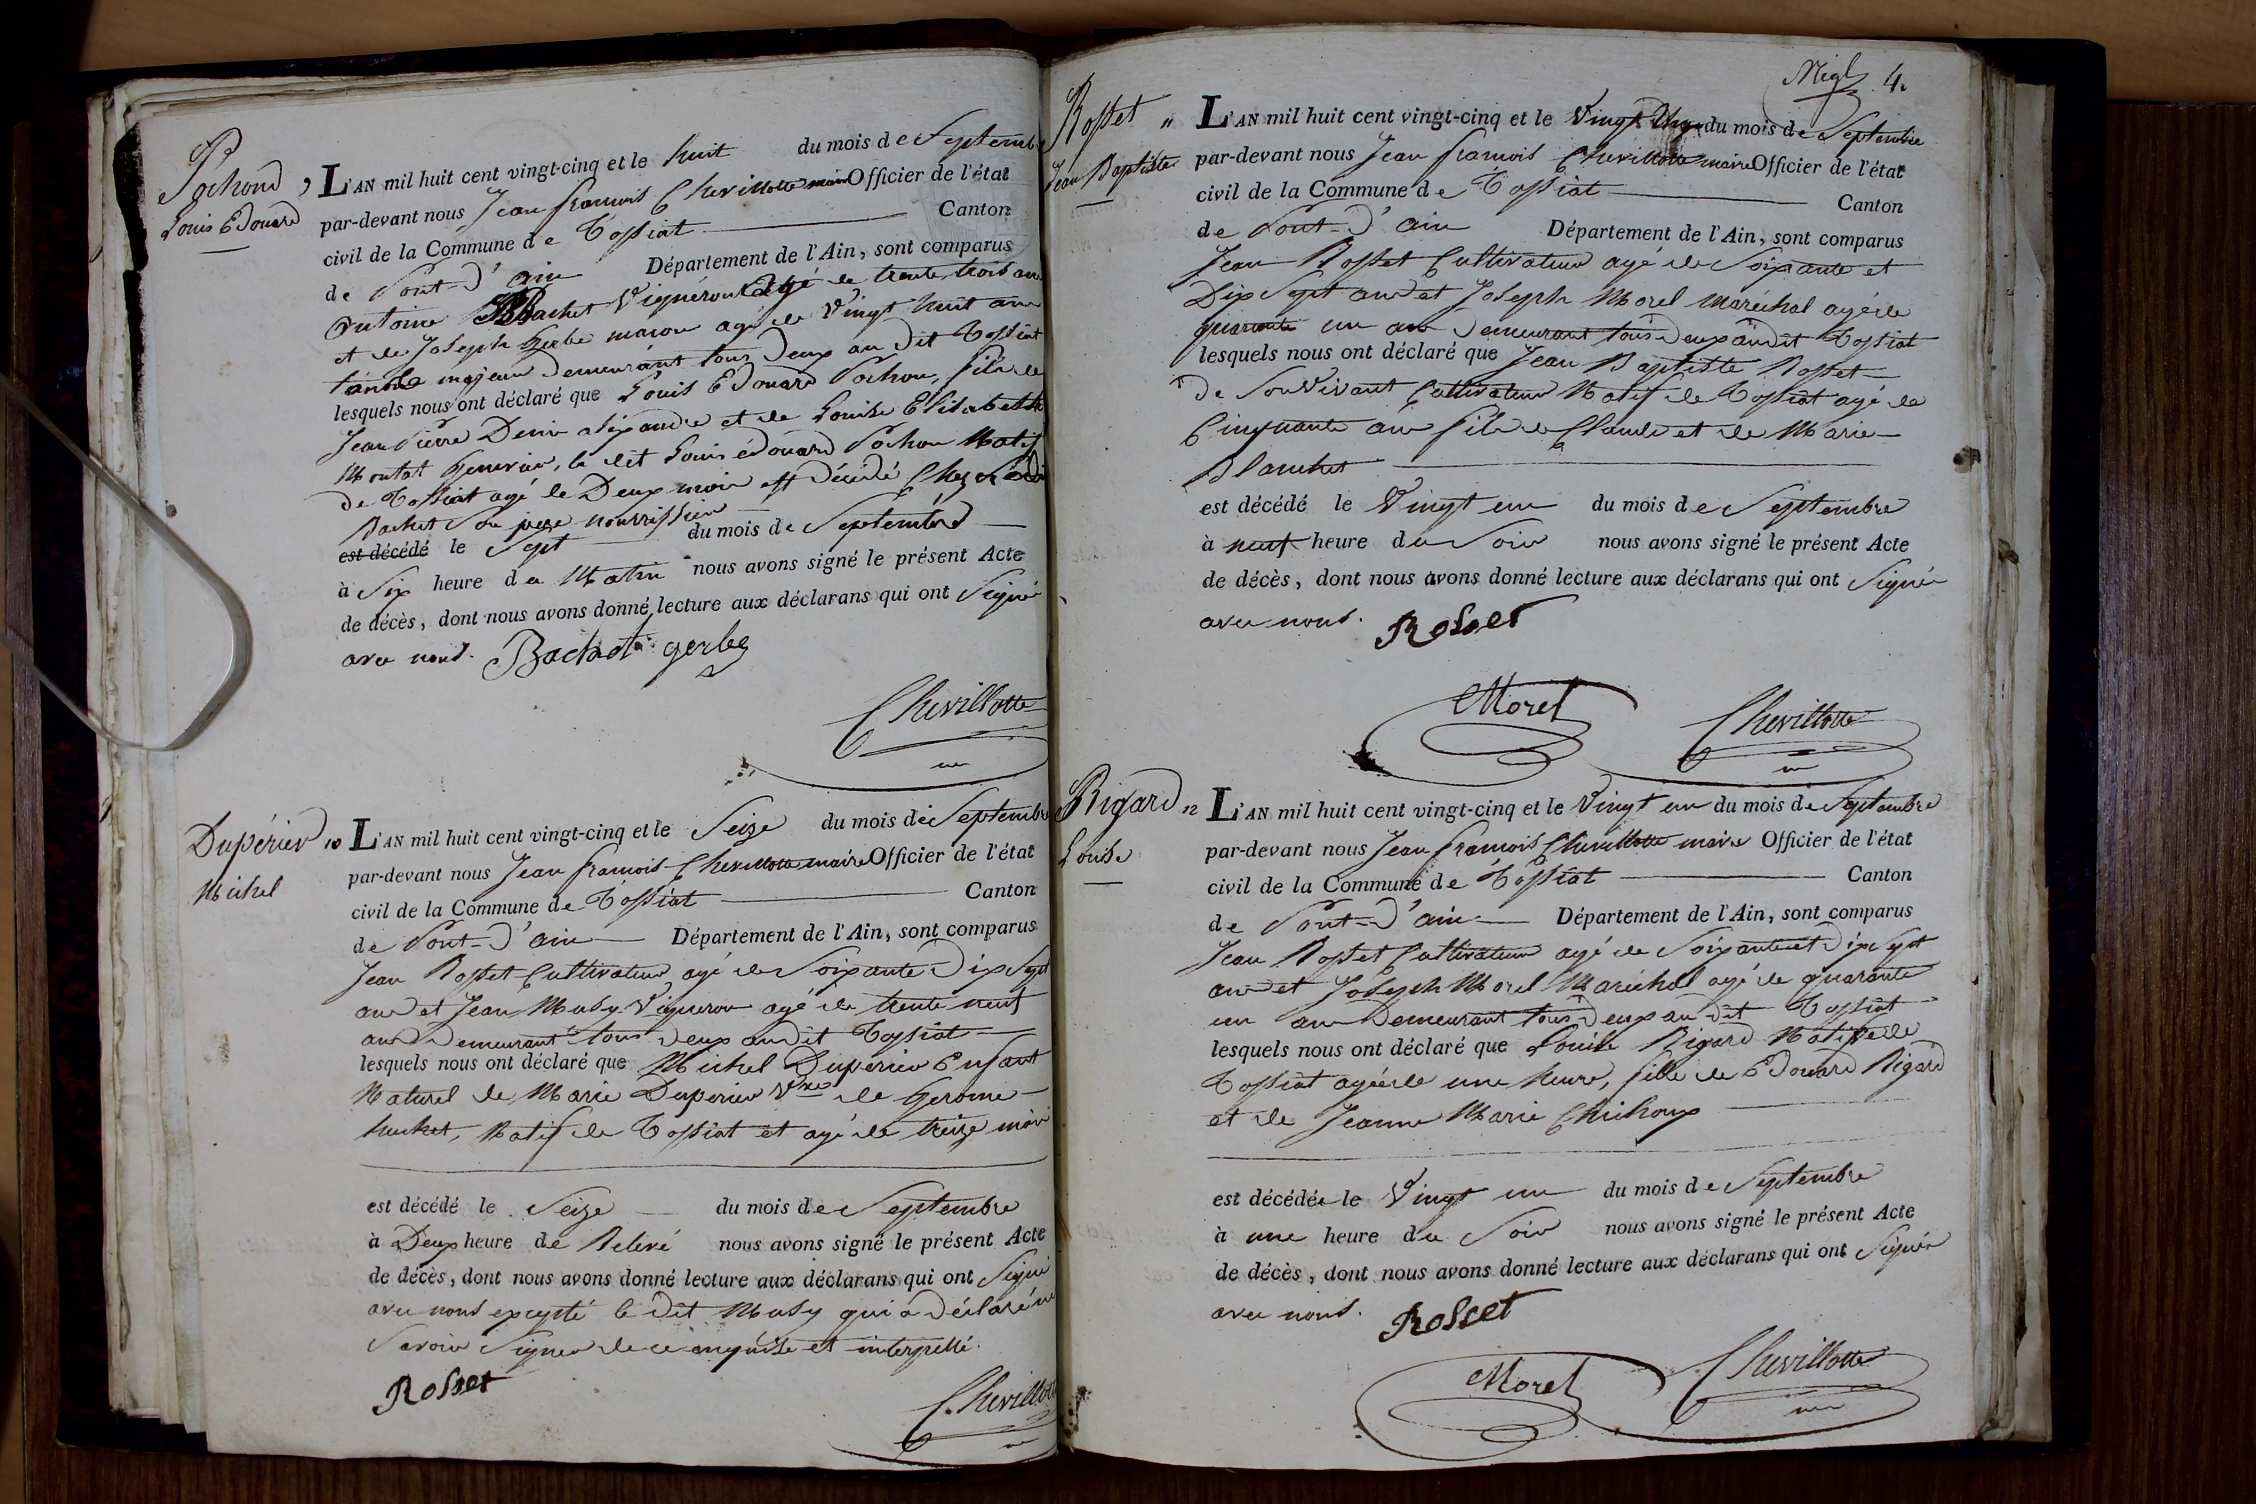 Pochond 9
Louis Edouard
L'AN mil huit cent vingt-cinq et le huit du mois de Septembre
par-devant nous Jean francois Chevillotte maire Officier de l'état
civil de la Commune de Tossiat Canton
de Pont-D'ain Département de l'Ain, sont comparus
antoine Bachet Vigneron agé de trente trois ans
et de Joseph Gerbe macon agé de Vingt huit ans
majeur demeurant tous deux au dit Tossiat
lesquels nous ont déclaré que Louis Edouard Pochon, fils de
Jean Pierre Denis alixandre et de Louise Elisabeth
Moutot, le dit Louis édouard Pochon Natif
de Tossiat agé de Deux mois est décédé Chez
Bachet Son pere nourrissier
est décédé le Sept du mois de Septembre
à Six heure du Matin nous avons signé le présent Acte
de décès, dont nous avons donné lecture aux déclarans qui ont Signé
avec nous. Bachet gerbe
Chevillotte
Dupérier 10
Michel
L'AN mil huit cent vingt-cinq et le Seize du mois de Septembre
par-devant nous Jean francois Chevillotte maire Officier de l'état
civil de la Commune de Tossiat Canton
de Pont-D'ain Département de l'Ain, sont comparus
Jean Rosset Cultivateur agé de Soixante Dix Sept
ans et Jean Musy Vigneron agé de trente neuf
ans Demeurant tous deux audit Tossiat
lesquels nous ont déclaré que Michel Dupérier Enfant
Naturel de Marie Duperier Vve de Gerome
huchet, Natif de Tossiat et agé de treize mois
est décédé le Seize du mois de Septembre
à Deux heure de Relevé nous avons signé le présent Acte
de décès, dont nous avons donné lecture aux déclarans qui ont Signé
avec nous excepté le dit Musy qui a déclaré ne
Savoir Signer de ce enquise et interpellé.
Rosset
Chevillotte
4.
Rosset 11
Jean Baptiste
L'AN mil huit cent vingt-cinq et le Vingt du mois de Septembre
par-devant nous Jean francois Chevillotte maire Officier de l'état
civil de la Commune de Tossiat Canton
de Pont-D'ain Département de l'Ain, sont comparus
Jean Rosset Cultivateur agé de Soixante et
Dix Sept ans et Joseph Morel maréchal agé de
quarante un ans Demeurant tous Deux audit Tossiat
lesquels nous ont déclaré que Jean Baptiste Rosset
de Son Vivant Cultivateur Natif de Tossiat agé de
Cinquante ans fils de Claude et de Marie
Blanchet
est décédé le Vingt un du mois de Septembre
à neuf heure du Soir nous avons signé le présent Acte
de décès, dont nous avons donné lecture aux déclarans qui ont Signé
avec nous. Rosset
Morel Chevillotte
Rigard 12
Louise
L'AN mil huit cent vingt-cinq et le Vingt un du mois de Septembre
par-devant nous Jean francois Chevillotte maire Officier de l'état
civil de la Commune de Tossiat Canton
de Pont-D'ain Département de l'Ain, sont comparus
Jean Rosset Cultivateur agé de Soixante et Dix Sept
ans et Joseph Morel Maréchal agé de quarante
un ans Demeurant tous Deux au dit Tossiat
lesquels nous ont déclaré que Louise Rigard Native de
Tossiat agée de une heure, fille de Edouard Rigard
et de Jeanne Marie Chichoux
est décédée le Vingt un du mois de Septembre
à une heure du Soir nous avons signé le présent Acte
de décès, dont nous avons donné lecture aux déclarans qui ont Signé
avec nous. Rosset
Morel Chevillotte